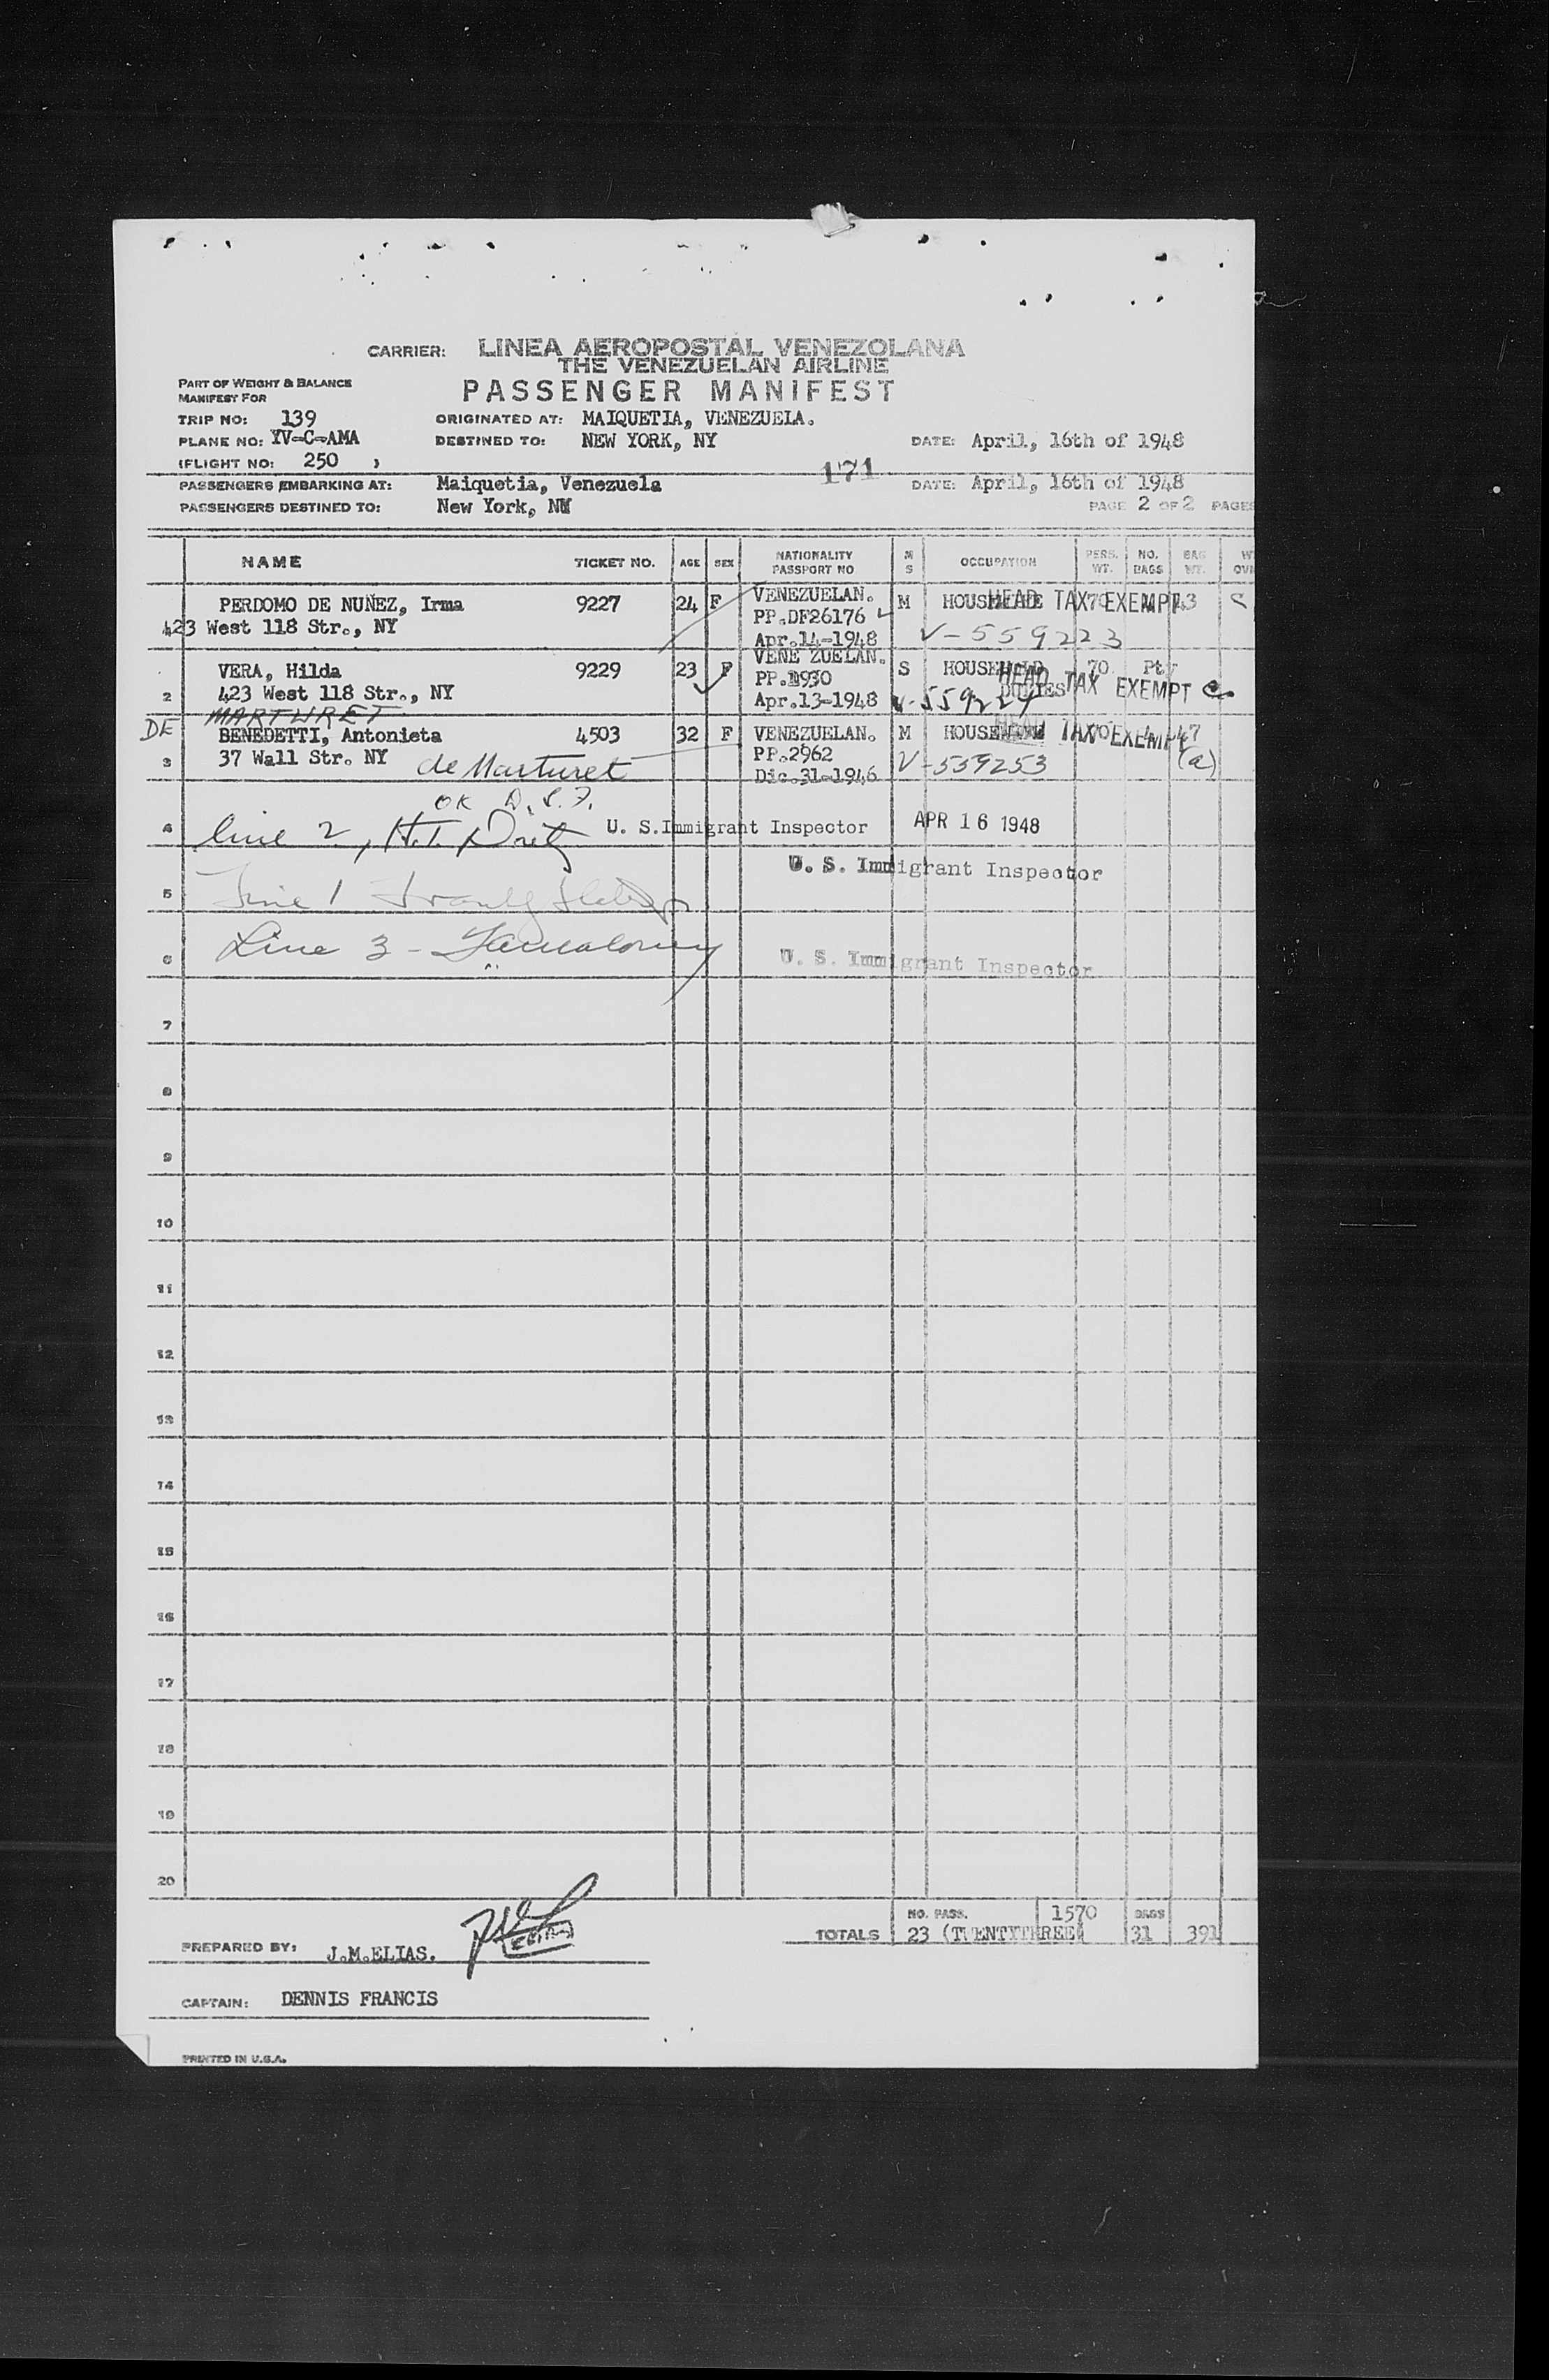 CARRIER: LINEA AEROPOSTAL VENEZOLANA
THE VENEZUELAN AIRLINE
PASSENGER MANIFEST
PART OF WEIGHT & BALANCE
MANIFEST FOR
TRIP NO: 139 ORIGINATED AT: MAIQUETIA, VENEZUELA.
PLANE NO: YV-C-AMA DESTINED TO: NEW YORK, NY DATE: April, 16th of 1948
(FLIGHT NO: 250 )
171
PASSENGERS EMBARKING AT: Maiquetia, Venezuela DATE: April, 16th of 1948
PASSENGERS DESTINED TO: New York, NY PAGE 2 OF 2 PAGES
NAME TICKET NO. AGE SEX NATIONALITY PASSPORT NO M S OCCUPATION PERS. WT. NO. BAGS BAG WT.
PERDOMO DE NUÑEZ, Irma 9227 24 F VENEZUELAN. M HEAD TAX EXEMPT
423 West 118 Str., NY PP.DF26176
Apr.14-1948 V-559223
VERA, Hilda 9229 23 F VENE ZUELAN. S HOUSEHOLD 70
2 423 West 118 Str., NY PP.1930 DUTIES HEAD TAX EXEMPT
Apr.13-1948 V-559224
MARTURET
DE BENEDETTI, Antonieta 4503 32 F VENEZUELAN. M HEAD TAX EXEMPT 47
3 37 Wall Str. NY de Marturet PP.2962 (a)
Dic.31-1946 V-559253
OK
4 line 2, H.T. U. S.Immigrant Inspector APR 16 1948
U. S. Immigrant Inspector
5 Line 1
6 Line 3 - U. S. Immigrant Inspector
7
8
9
10
11
12
13
14
15
16
17
18
19
20
NO. PASS. 1570 BAGS
TOTALS 23 (TWENTYTHREE) 31 391
PREPARED BY: J.M.ELIAS.
CAPTAIN: DENNIS FRANCIS
PRINTED IN U.S.A.